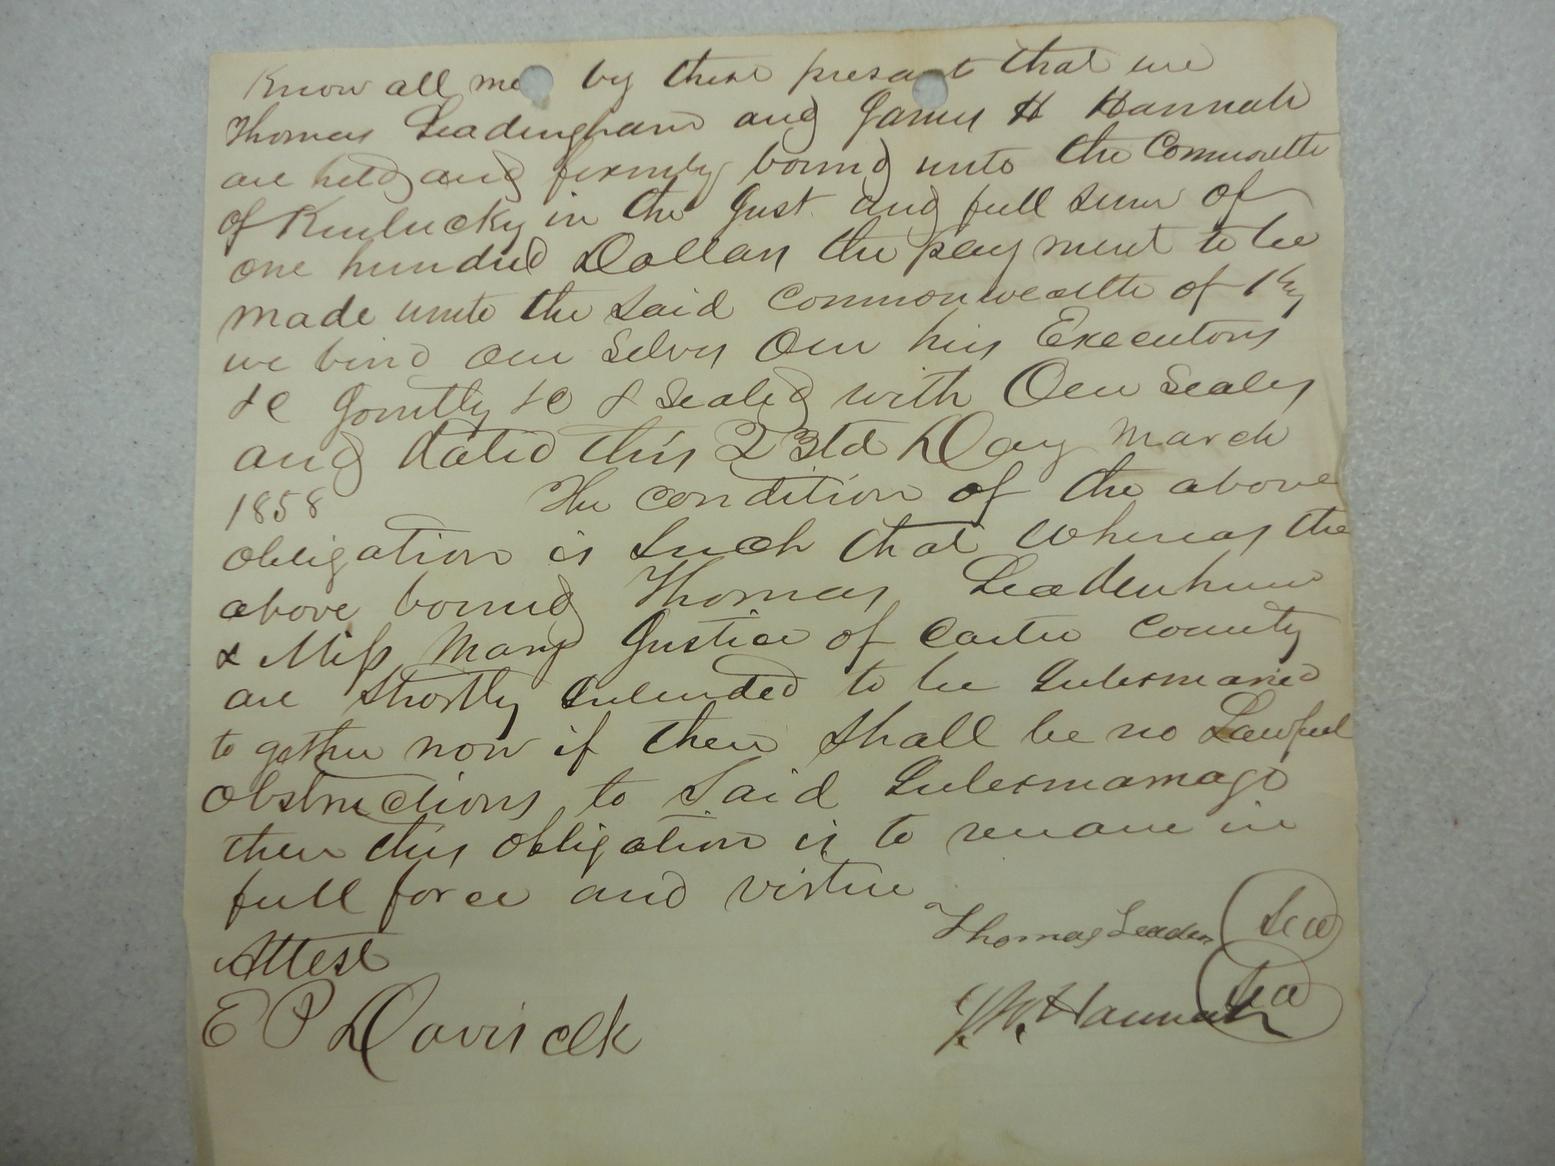 Know all me by these presant that we
Thomas Leadingham and James H Hannah
are held and firmly bound unto the Commwelth
of Kentucky in the Just and full sum of
one hundred Dollars the pay ment to be
made unto the said Commonwealth of Ky
we bind our selves Our his Executors
&c Jointly &c & sealed with Our seales
and dated this 23td Day March
1858 The condition of the above
obligation is such that whereas the
above bound Thomas Leadenham
& Miss Mary Justice of Carter County
are shortly intended to be intermaried
to gether now if ther shall be no Lawful
obstructions to said intermarrage
then this obligation is to remane in
full force and virtue
Thomas Leaden Sea
Attest
J. H. Hannah Sea
E P Davis clk